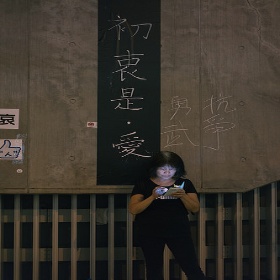 初衷是·愛
勇武
抗爭
哀